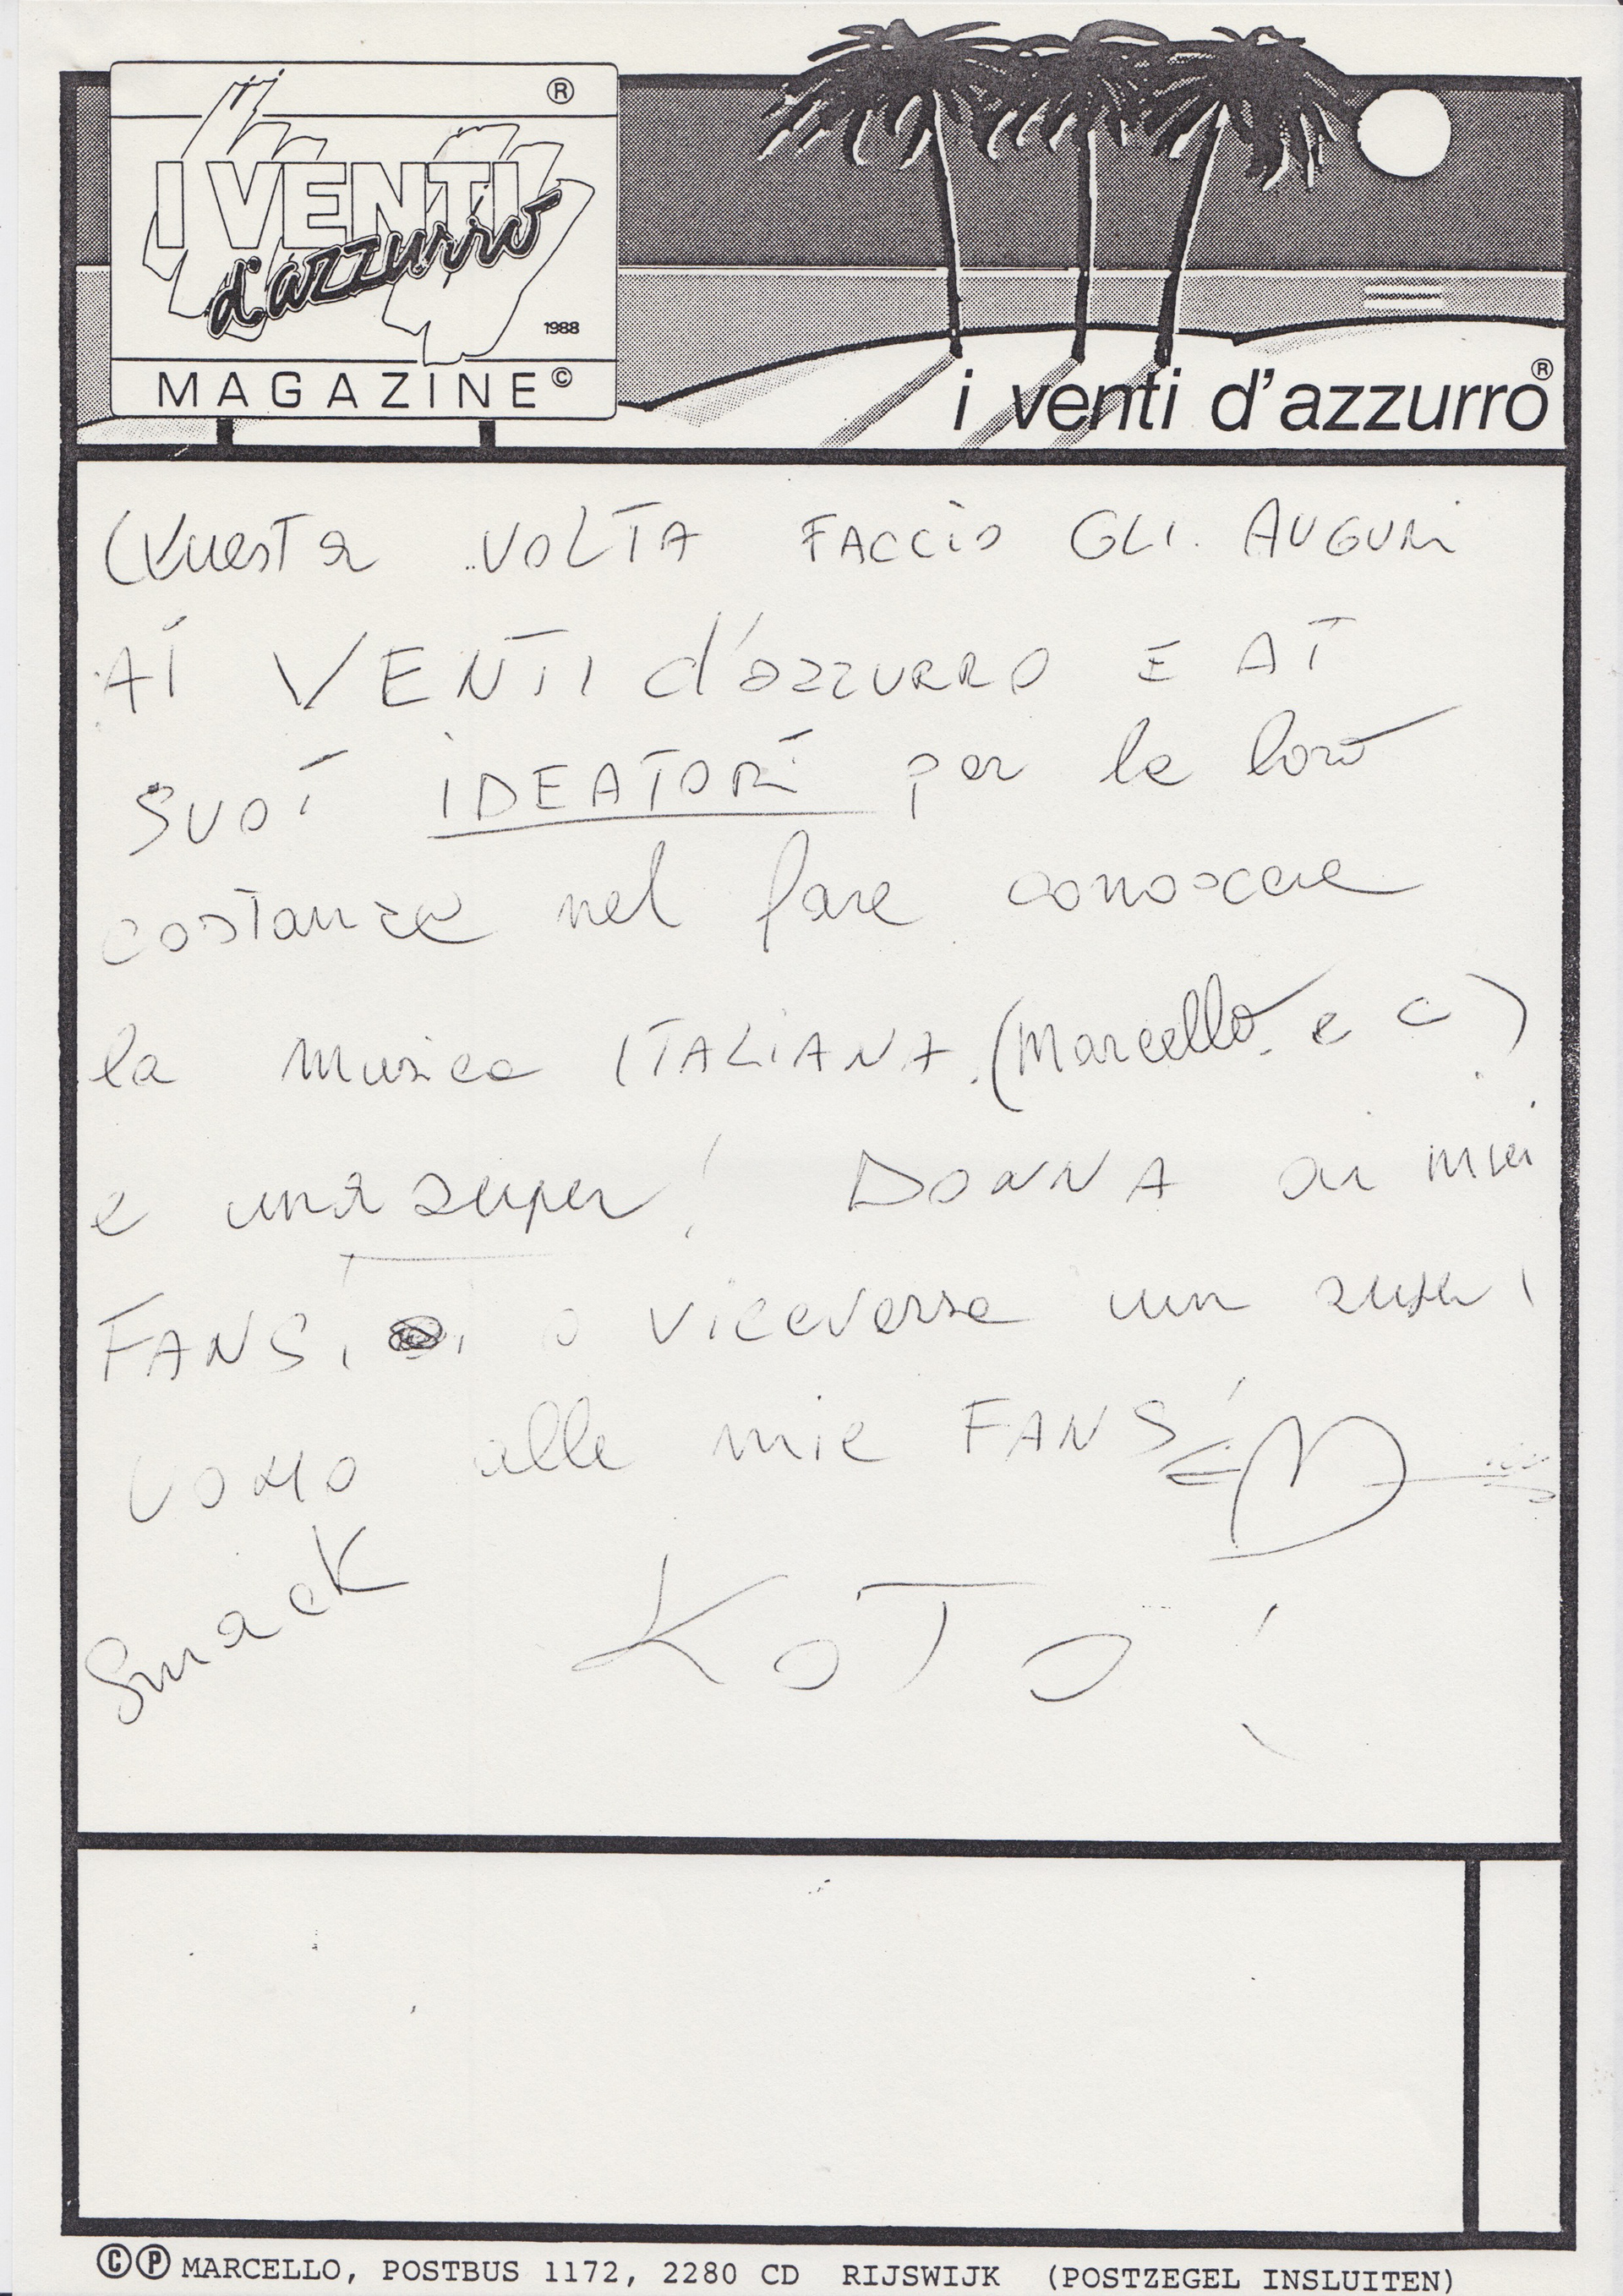 ®
I VENTI
d'azzurro
1988
MAGAZINE©
i venti d'azzurro®
Questa VOLTA FACCIO GLI AUGURI
AI VENTI d'azzURRO E AI
SUOI IDEATORI per la loro
costanza nel fare conoscere
la musica ITALIANA. (Marcello e C)
e una super! DONNA ai miei
FANS, o viceversa un super
UOMO alle mie FANS
Smack KOTO!
©℗ MARCELLO, POSTBUS 1172, 2280 CD RIJSWIJK (POSTZEGEL INSLUITEN)